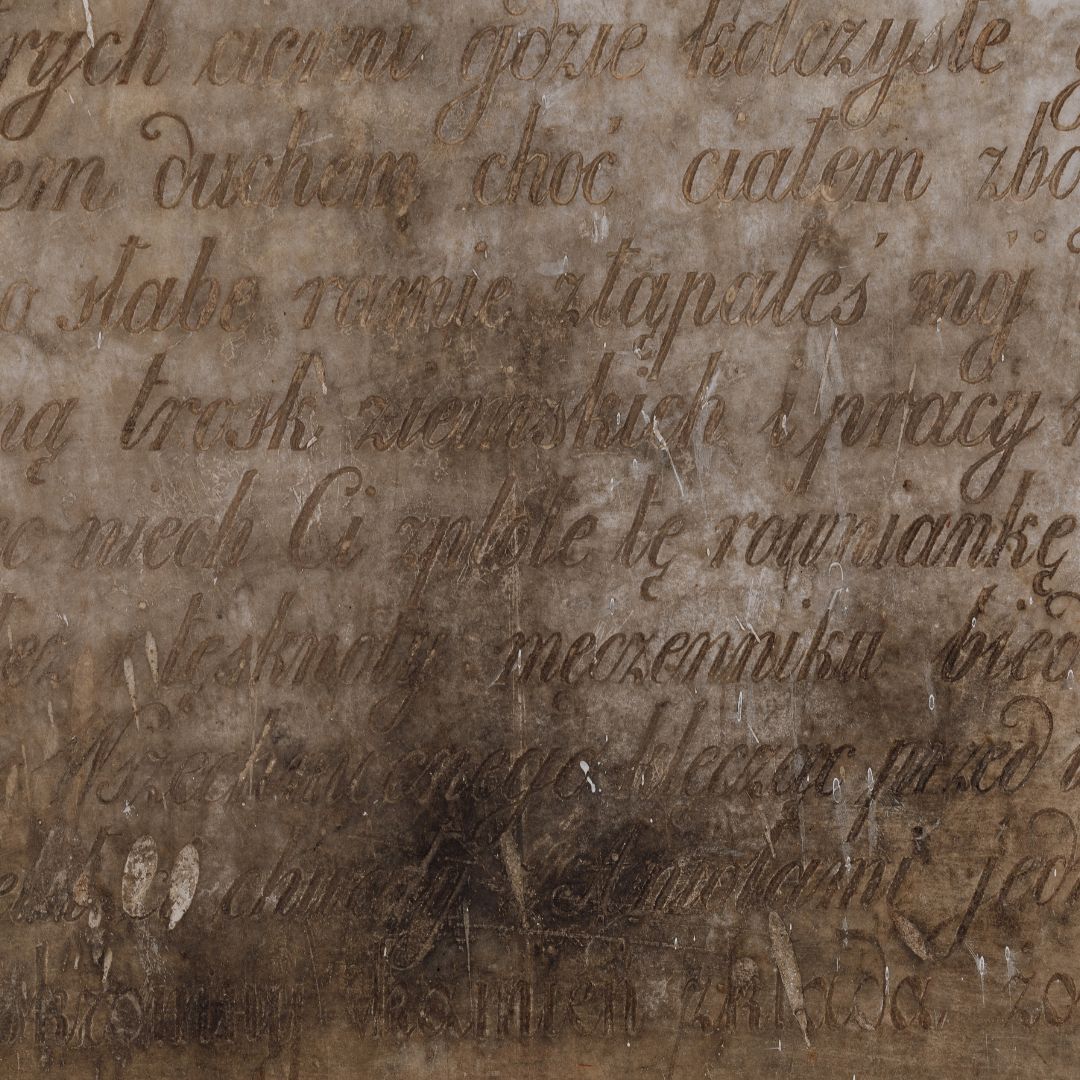 rych cierni gdzie kolczyste
em duchem choć ciałem zbo
o słabę ramię złąpałeś mój
ną trosk ziemskich i pracy
niech Ci zplote tę rowniankę
łez i tęsknoty męczenniku bied
Wszechmocnego klecząc przed
ci chwały Aniołami jed
kamień zkłada żo